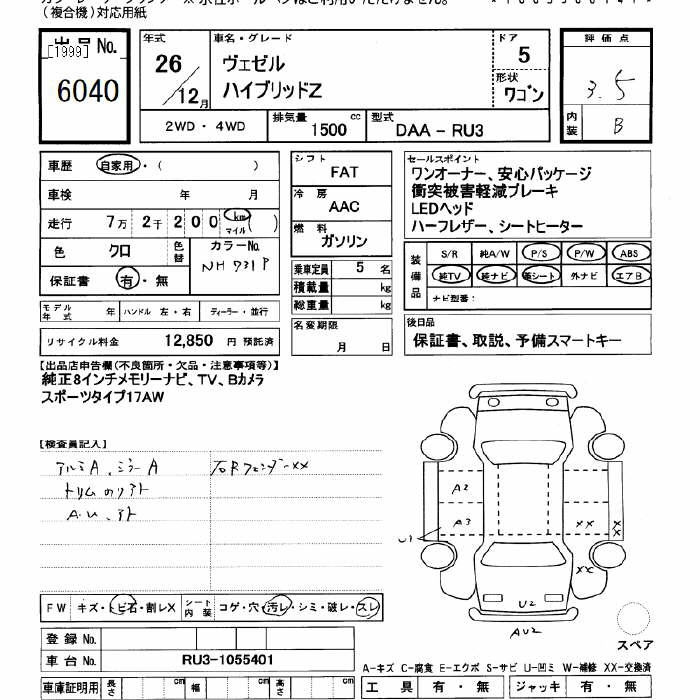 (複合機)対応用紙
出品 No.
[1999]
6040
年式 車名・グレード ドア
26 ヴェゼル 5
12月 ハイブリッドZ 形状 ワゴン
2WD・4WD 排気量 1500 cc 型式 DAA-RU3
評価点
3.5
内装 B
車歴 自家用・( )
車検 年 月
走行 7万 2千 200 km マイル ( )
色 クロ 色替 カラーNo. NH731P
保証書 有・無
モデル年式 年 ハンドル 左・右 ディーラー・並行
リサイクル料金 12,850 円 預託済
シフト FAT
冷房 AAC
燃料 ガソリン
乗車定員 5 名
積載量 kg
総重量 kg
名変期限
月 日
セールスポイント
ワンオーナー、安心パッケージ
衝突被害軽減ブレーキ
LEDヘッド
ハーフレザー、シートヒーター
装備品 S/R 純A/W P/S P/W ABS
純TV 純ナビ 革シート 外ナビ エアB
ナビ型番:
後日品
保証書、取説、予備スマートキー
【出品店申告欄(不良箇所・欠品・注意事項等)】
純正8インチメモリーナビ、TV、Bカメラ
スポーツタイプ17AW
【検査員記入】
アルミA、ミラーA
A2
A3
U1
XX
XX
XX
U2
AU2
スペア
FW キズ・トビ石・割レX シート内装 コゲ・穴・汚レ・シミ・破レ・スレ
登録 No.
車台 No. RU3-1055401
A-キズ C-腐食 E-エクボ S-サビ U-凹ミ W-補修 XX-交換済
車庫証明用 長さ cm 幅 cm 高さ cm
工具 有・無 ジャッキ 有・無